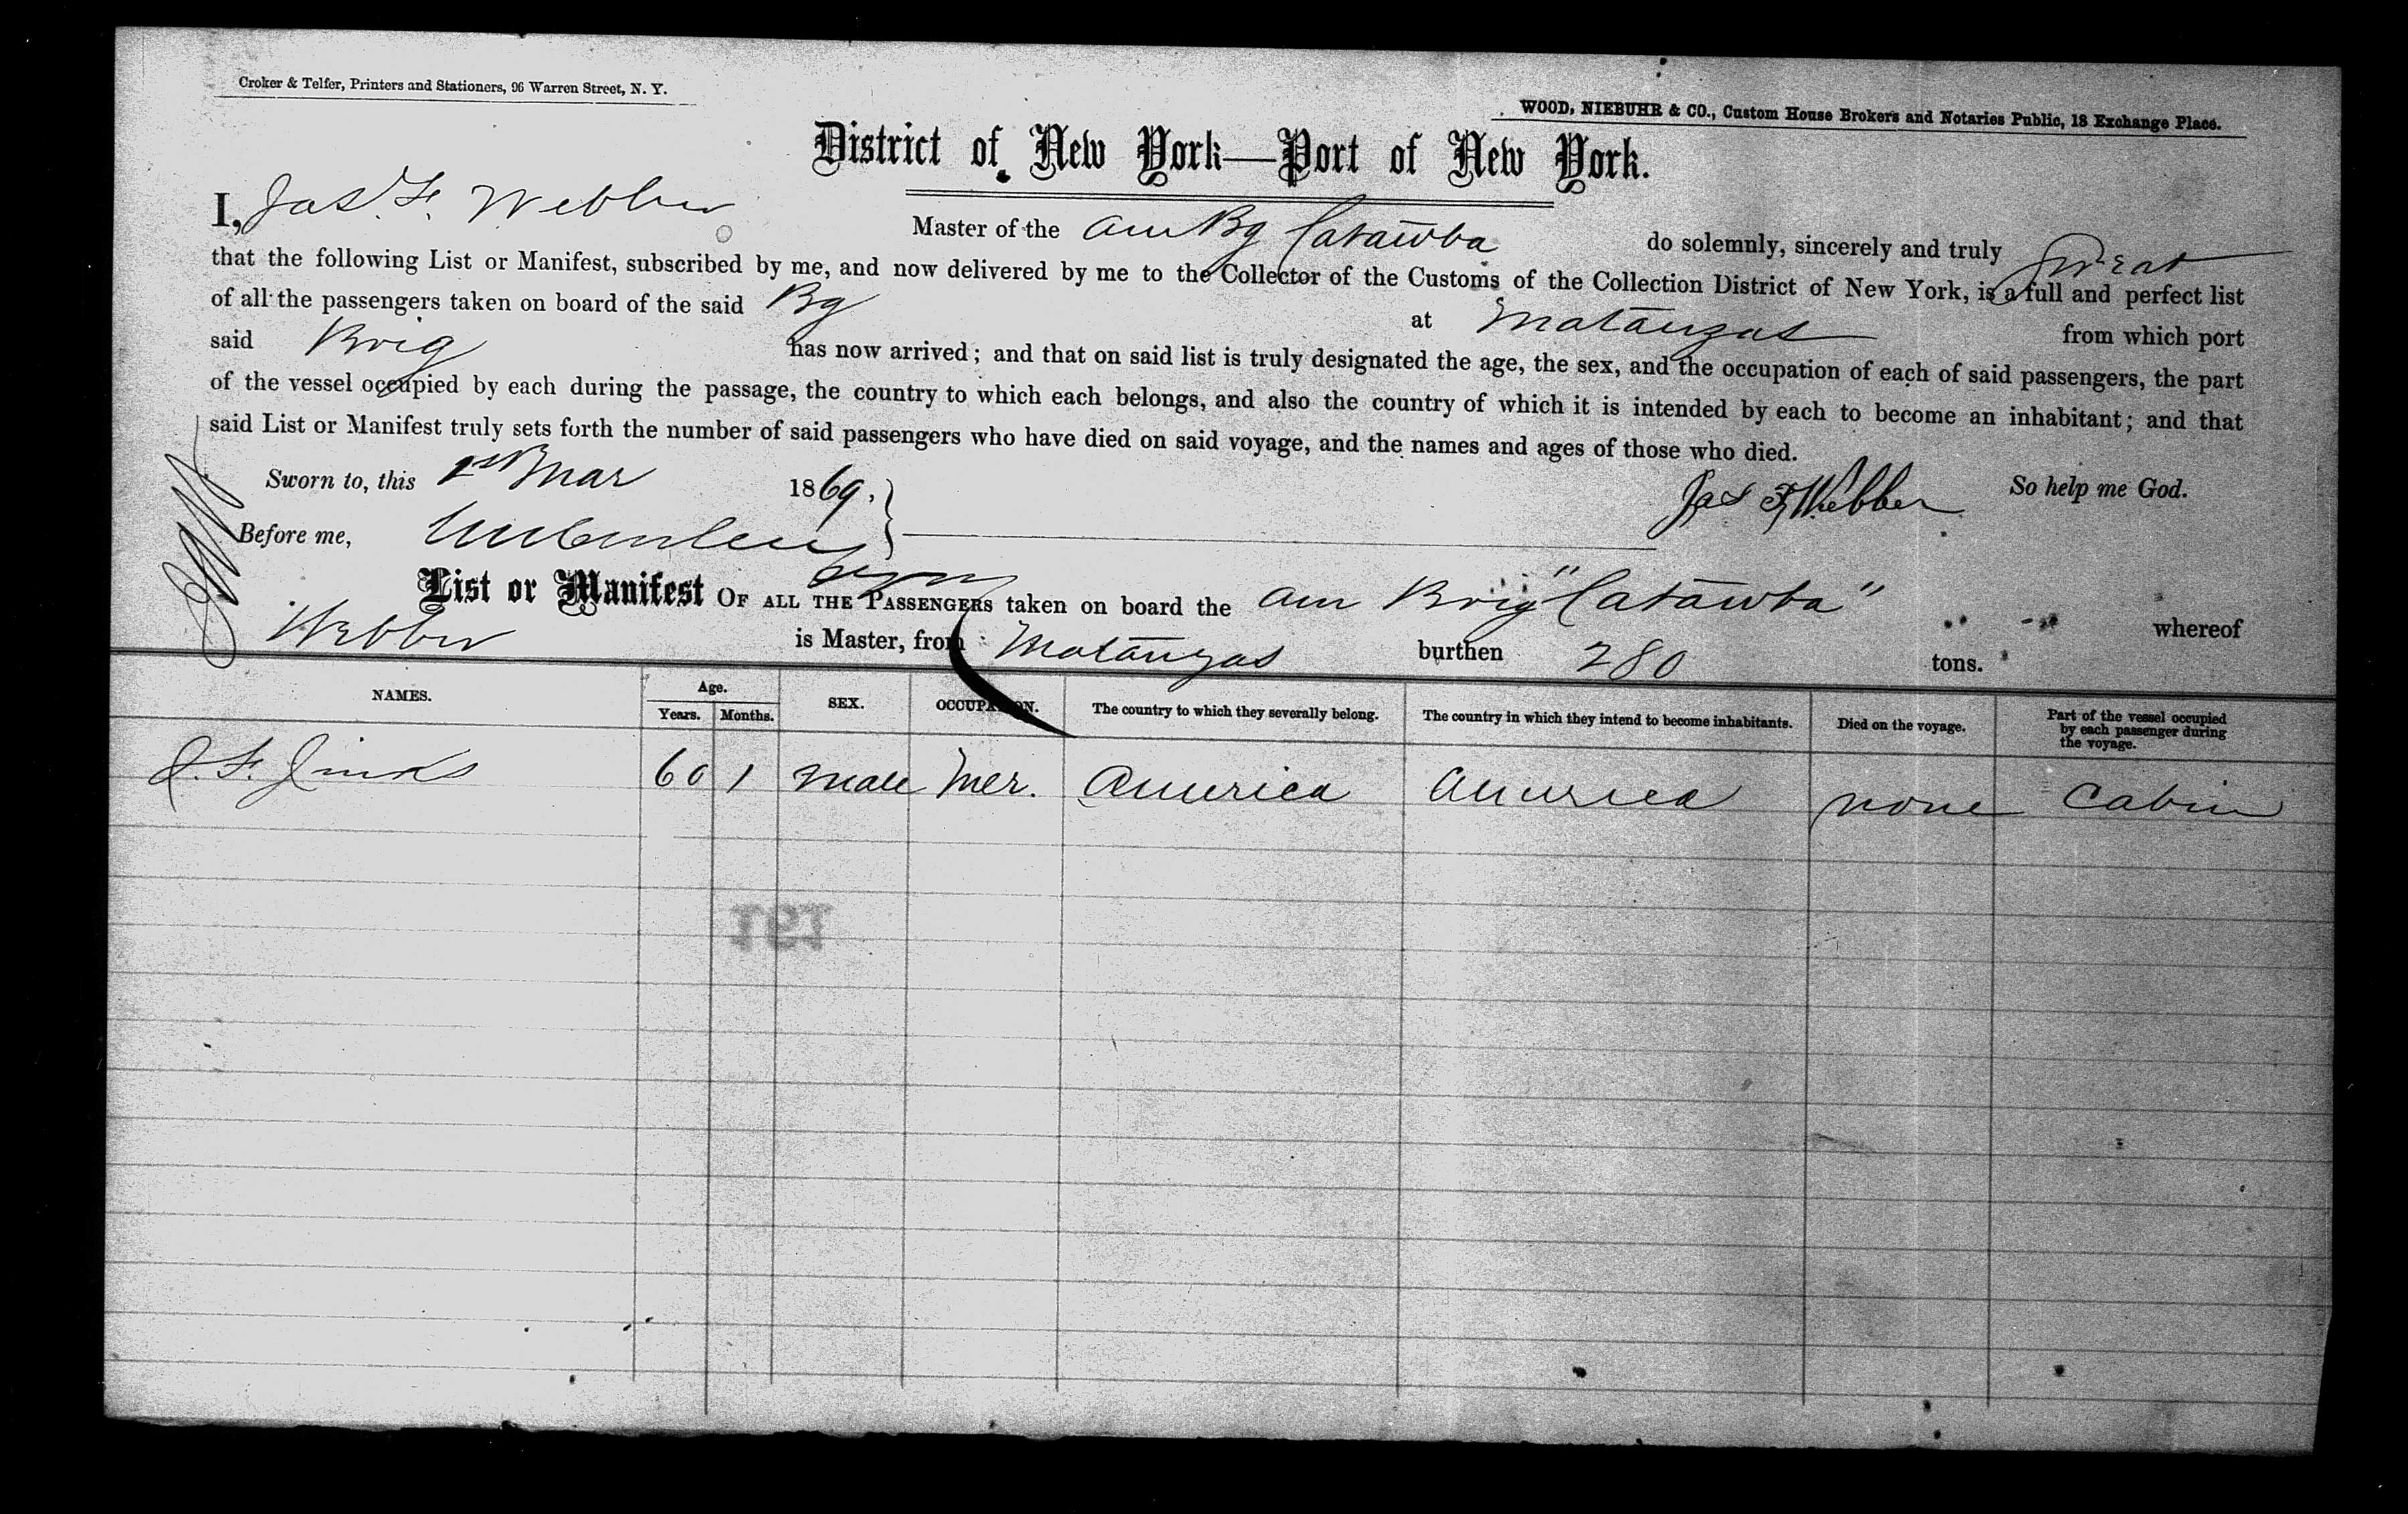 Croker & Telfer, Printers and Stationers, 96 Warren Street, N. Y.
WOOD, NIEBUHR & CO., Custom House Brokers and Notaries Public, 18 Exchange Place.
District of New York—Port of New York.
I, Jas. F. Webber Master of the Am Bg Catawba do solemnly, sincerely and truly Swear
that the following List or Manifest, subscribed by me, and now delivered by me to the Collector of the Customs of the Collection District of New York, is a full and perfect list
of all the passengers taken on board of the said Bg at Matanzas from which port
said Brig has now arrived; and that on said list is truly designated the age, the sex, and the occupation of each of said passengers, the part
of the vessel occupied by each during the passage, the country to which each belongs, and also the country of which it is intended by each to become an inhabitant; and that
said List or Manifest truly sets forth the number of said passengers who have died on said voyage, and the names and ages of those who died.
Sworn to, this 1st Mar 1869. Jas F Webber So help me God.
Before me,
List or Manifest OF ALL THE PASSENGERS taken on board the Am Brig "Catawba" whereof
Webber is Master, from Matanzas burthen 280 tons.
NAMES. Age. Years. Months. SEX. OCCUPATION. The country to which they severally belong. The country in which they intend to become inhabitants. Died on the voyage. Part of the vessel occupied by each passenger during the voyage.
J. F. Jinks 60 1 Male Mer. America America none Cabin